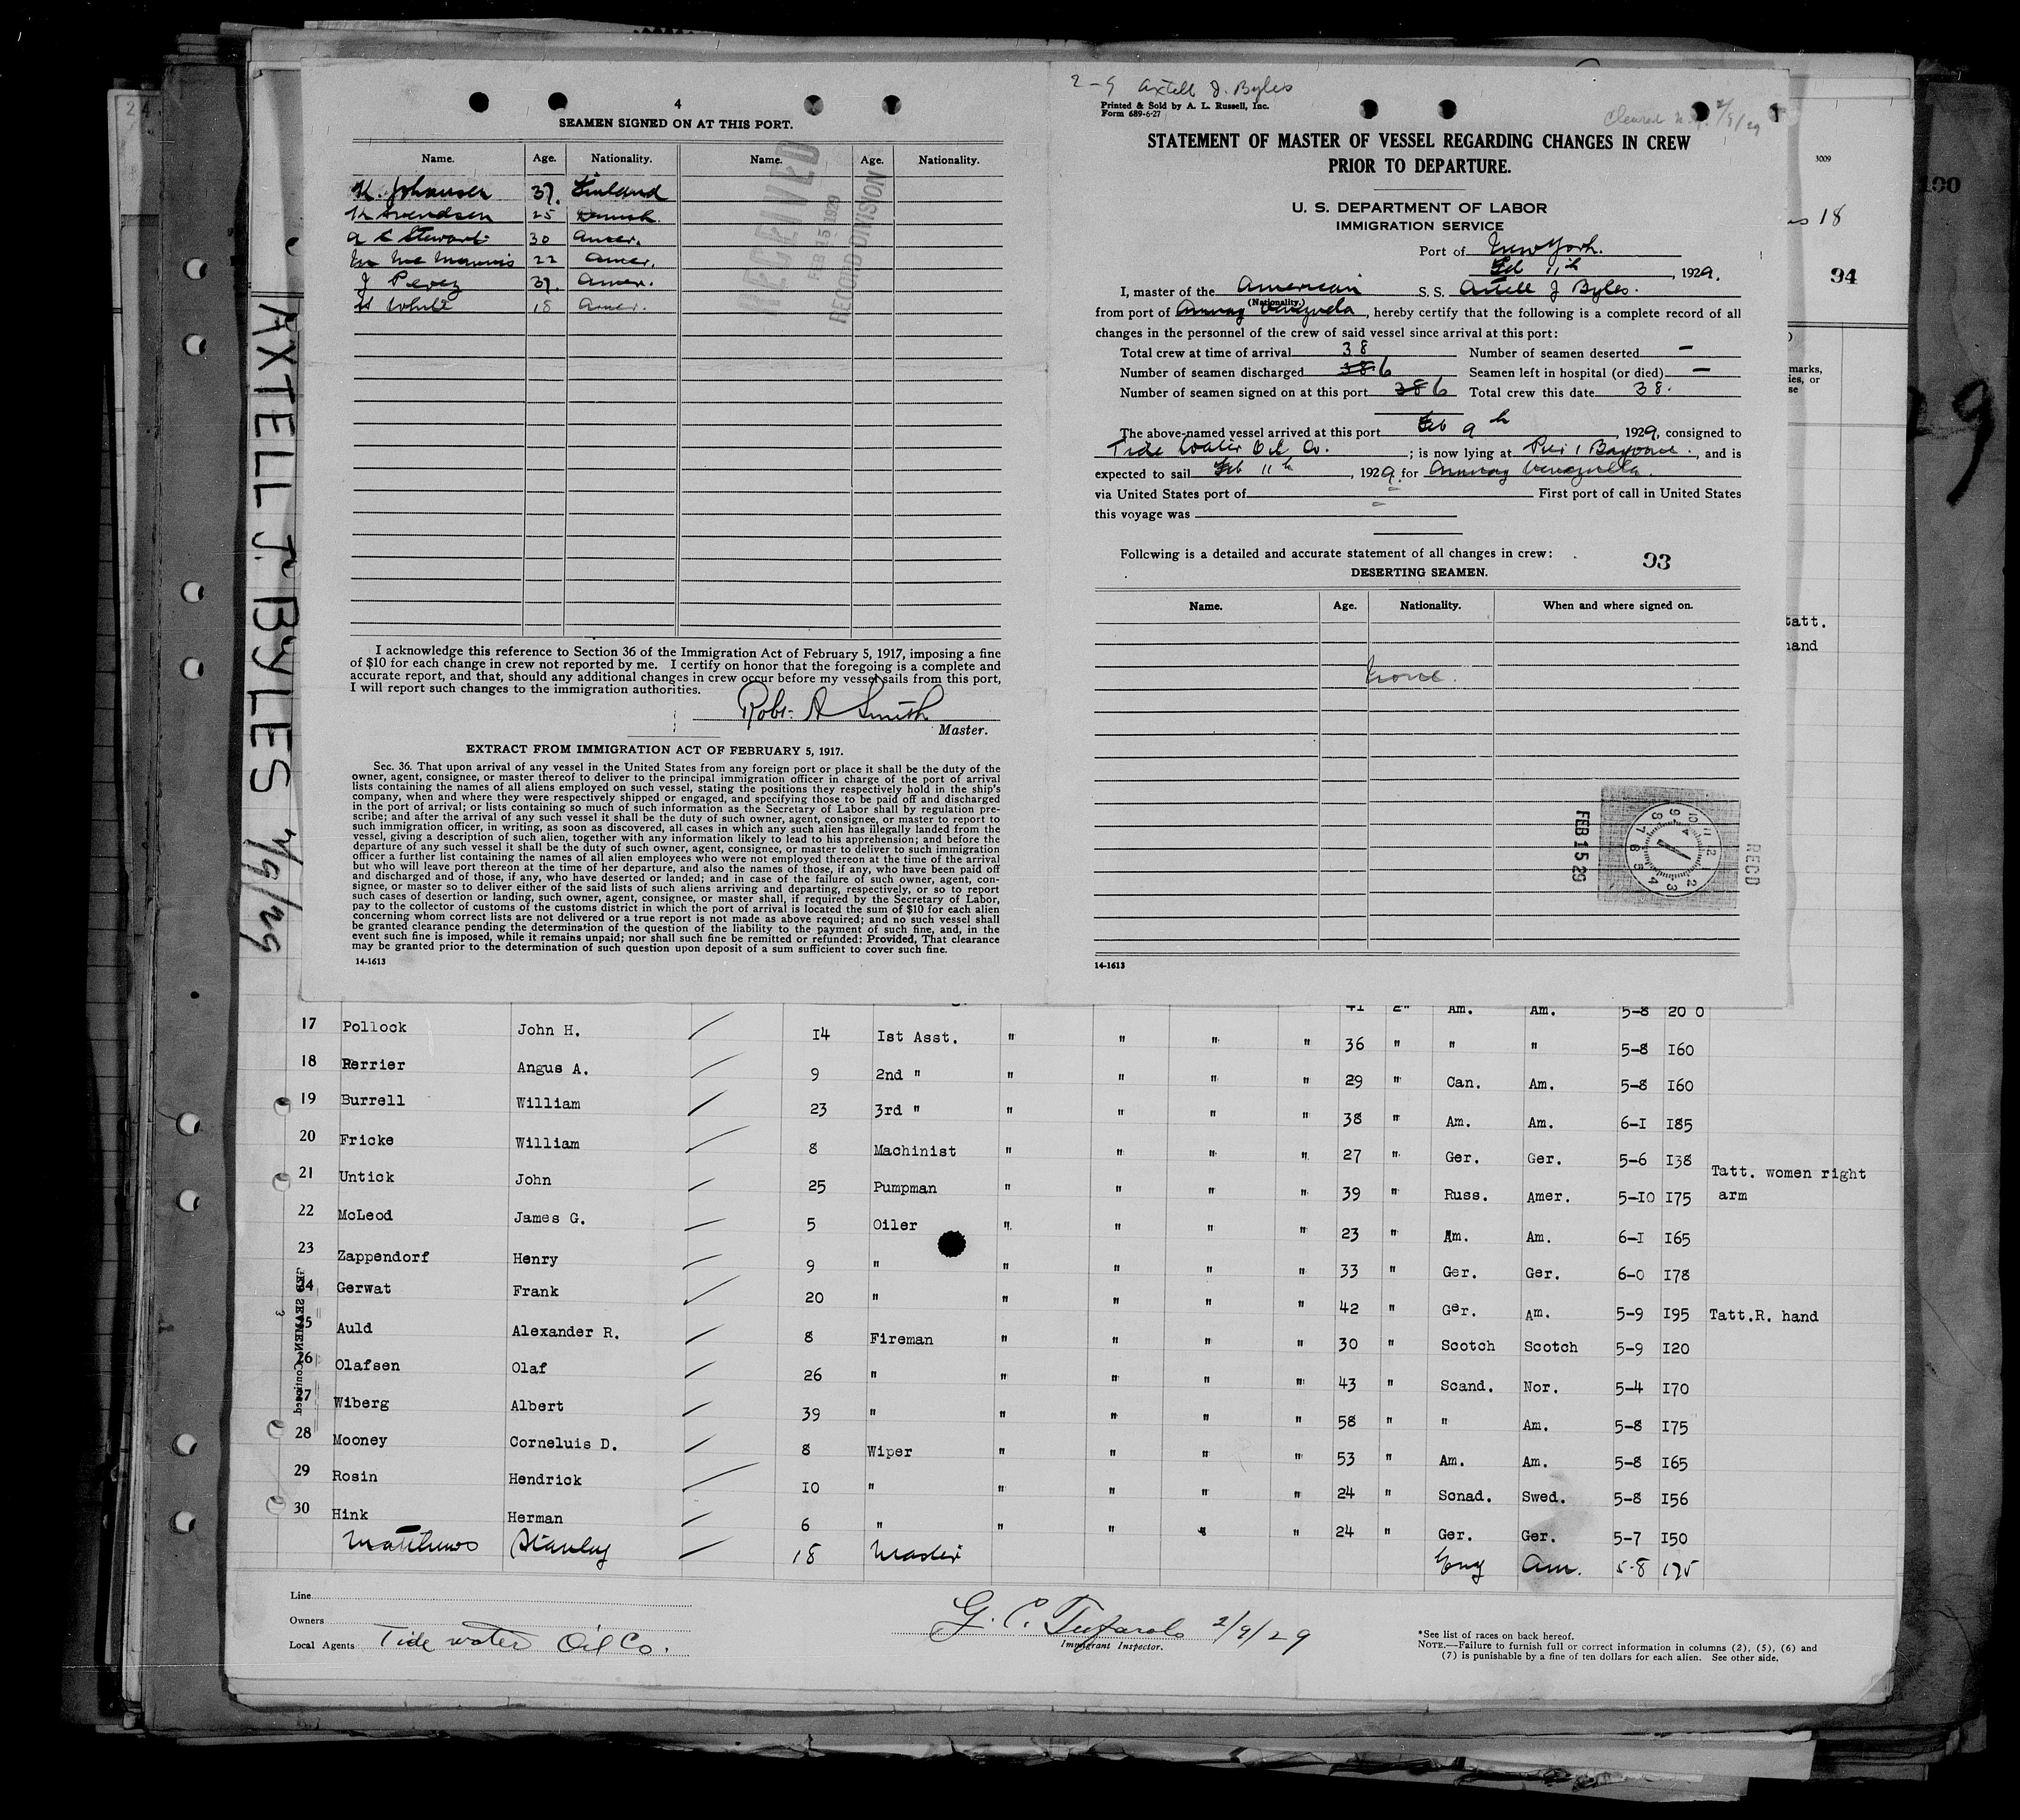 4
SEAMEN SIGNED ON AT THIS PORT.
Name. Age. Nationality. Name. Age. Nationality.
K. Johansen 37. Finland
K Svendsen 25 Danish.
A C Stewart 30 Amer.
22 Amer.
J Perez 37. Amer.
H White 18 Amer.
RECEIVED
FEB 15 1929
RECORD DIVISION
I acknowledge this reference to Section 36 of the Immigration Act of February 5, 1917, imposing a fine
of $10 for each change in crew not reported by me. I certify on honor that the foregoing is a complete and
accurate report, and that, should any additional changes in crew occur before my vessel sails from this port,
I will report such changes to the immigration authorities.
Robt. A Smith
Master.
EXTRACT FROM IMMIGRATION ACT OF FEBRUARY 5, 1917.
Sec. 36. That upon arrival of any vessel in the United States from any foreign port or place it shall be the duty of the
owner, agent, consignee, or master thereof to deliver to the principal immigration officer in charge of the port of arrival
lists containing the names of all aliens employed on such vessel, stating the positions they respectively hold in the ship's
company, when and where they were respectively shipped or engaged, and specifying those to be paid off and discharged
in the port of arrival; or lists containing so much of such information as the Secretary of Labor shall by regulation pre-
scribe; and after the arrival of any such vessel it shall be the duty of such owner, agent, consignee, or master to report to
such immigration officer, in writing, as soon as discovered, all cases in which any such alien has illegally landed from the
vessel, giving a description of such alien, together with any information likely to lead to his apprehension; and before the
departure of any such vessel it shall be the duty of such owner, agent, consignee, or master to deliver to such immigration
officer a further list containing the names of all alien employees who were not employed thereon at the time of the arrival
but who will leave port thereon at the time of her departure, and also the names of those, if any, who have been paid off
and discharged and of those, if any, who have deserted or landed; and in case of the failure of such owner, agent, con-
signee, or master so to deliver either of the said lists of such aliens arriving and departing, respectively, or so to report
such cases of desertion or landing, such owner, agent, consignee, or master shall, if required by the Secretary of Labor,
pay to the collector of customs of the customs district in which the port of arrival is located the sum of $10 for each alien
concerning whom correct lists are not delivered or a true report is not made as above required; and no such vessel shall
be granted clearance pending the determination of the question of the liability to the payment of such fine, and, in the
event such fine is imposed, while it remains unpaid; nor shall such fine be remitted or refunded: Provided, That clearance
may be granted prior to the determination of such question upon deposit of a sum sufficient to cover such fine.
14-1613
2-9 Axtell J. Byles
Printed & Sold by A. L. Russell, Inc.
Form 689-6-27
Cleared N.Y. 2/9/29
STATEMENT OF MASTER OF VESSEL REGARDING CHANGES IN CREW
PRIOR TO DEPARTURE.
U. S. DEPARTMENT OF LABOR
IMMIGRATION SERVICE
Port of New York.
Feb 11th, 1929.
I, master of the American S. S. Axtell J Byles.
(Nationality.)
from port of Amuay Venezuela, hereby certify that the following is a complete record of all
changes in the personnel of the crew of said vessel since arrival at this port:
Total crew at time of arrival 38 Number of seamen deserted —
Number of seamen discharged 38 6 Seamen left in hospital (or died) —
Number of seamen signed on at this port 38 6 Total crew this date 38.
The above-named vessel arrived at this port Feb 9th, 1929, consigned to
Tide Water Oil Co.; is now lying at Pier 1 Bayonne., and is
expected to sail Feb 11th, 1929, for Amuay Venezuella.
via United States port of First port of call in United States
this voyage was
Following is a detailed and accurate statement of all changes in crew:
93
DESERTING SEAMEN.
Name. Age. Nationality. When and where signed on.
None.
FEB 15 29
RECD
14-1613
AXTELL J. BYLES 2/9/29
3009
100
18
94
marks,
ies, or
se
29
tatt.
hand
41 2" Am. Am. 5-8 200
17 Pollock John H. 14 1st Asst. " " " " 36 " " " 5-8 160
18 Perrier Angus A. 9 2nd " " " " " 29 " Can. Am. 5-8 160
19 Burrell William 23 3rd " " " " " 38 " Am. Am. 6-1 185
20 Fricke William 8 Machinist " " " " 27 " Ger. Ger. 5-6 138
21 Untick John 25 Pumpman " " " " 39 " Russ. Amer. 5-10 175 Tatt. women right
arm
22 McLeod James G. 5 Oiler " " " " 23 " Am. Am. 6-1 165
23 Zappendorf Henry 9 " " " " " 33 " Ger. Ger. 6-0 178
24 Gerwat Frank 20 " " " " " 42 " Ger. Am. 5-9 195 Tatt.R. hand
25 Auld Alexander R. 8 Fireman " " " " 30 " Scotch Scotch 5-9 120
26 Olafsen Olaf 26 " " " " " 43 " Scand. Nor. 5-4 170
27 Wiberg Albert 39 " " " " " 58 " " Am. 5-8 175
28 Mooney Corneluis D. 8 Wiper " " " " 53 " Am. Am. 5-8 165
29 Rosin Hendrick 10 " " " " " 24 " Scnad. Swed. 5-8 156
30 Hink Herman 6 " " " " " 24 " Ger. Ger. 5-7 150
Matthews Stanley 18 Master Eng Am. 5-8 175
Line
Owners
Local Agents Tide water Oil Co.
G. C. Tufarolo 2/9/29
Immigrant Inspector.
*See list of races on back hereof.
NOTE.—Failure to furnish full or correct information in columns (2), (5), (6) and
(7) is punishable by a fine of ten dollars for each alien. See other side.